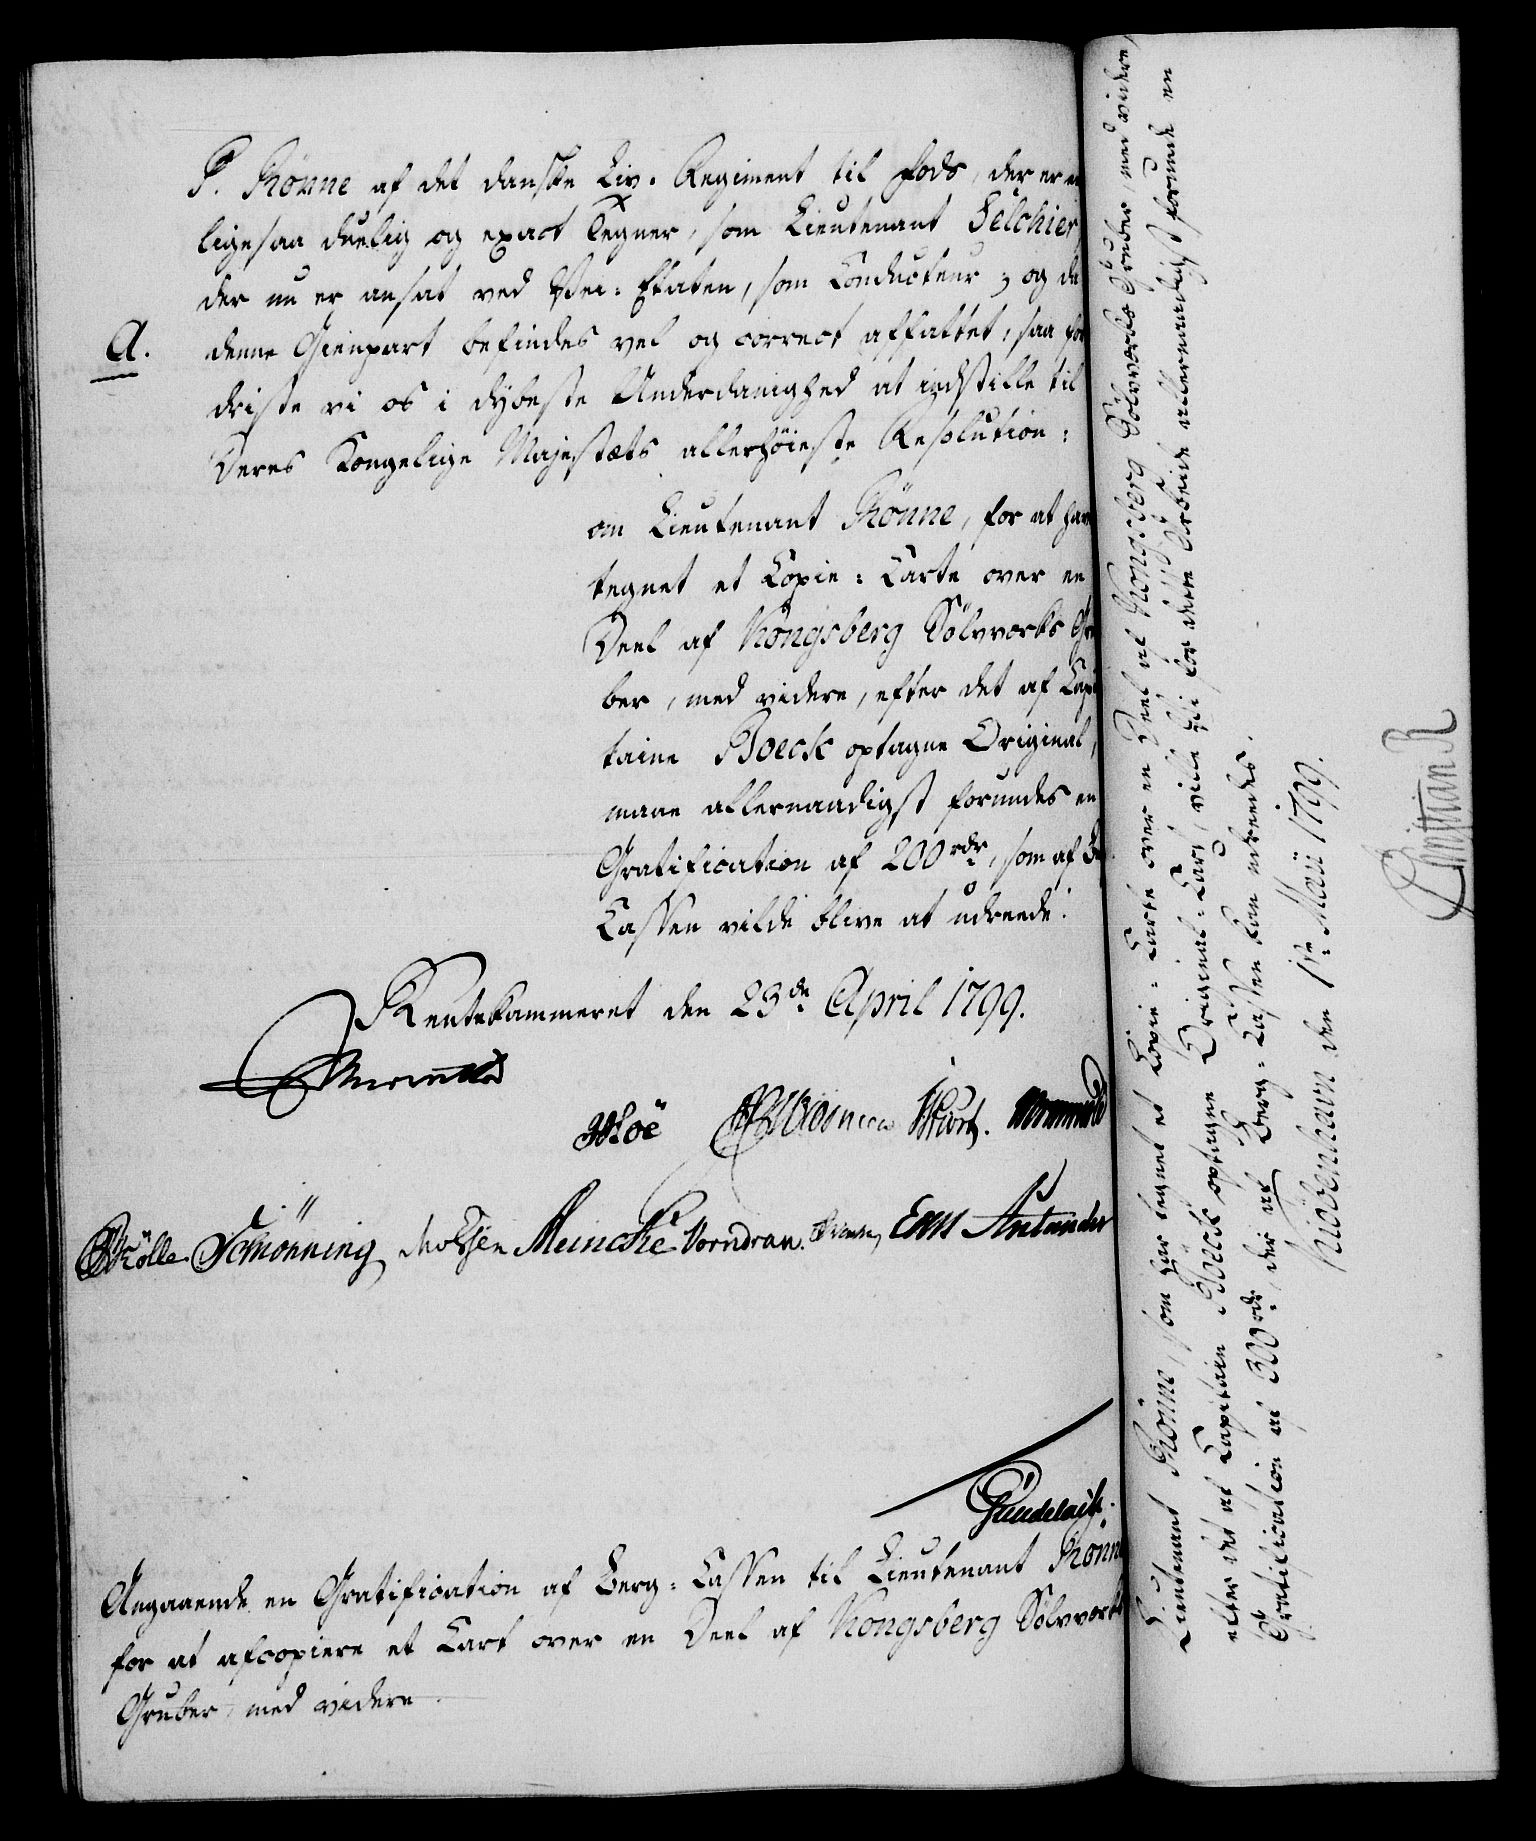 P. Rönne af det danske Liv-Regiment til Fods, der er en
ligesaa duelig og exact Tegner, som Lieutenant Selchier,
der nu er ansat ved Vei-Etaten, som Conducteur; og da
A. denne Gienpart befindes vel og correct affattet, saa for
driste vi os i dybeste Underdanighed at indstille til
Deres Kongelige Majestæts allerhöieste Resolution:
om Lieutenant Rönne, for at have
tegnet et Copie-Carte over en
Deel af Kongsberg Sölvværks Gru
ber, med videre, efter det af Capi
taine Boeck optagne Original,
maae allernaadigst forundes en
Gratification af 200 rdr, som af
Cassen vilde blive at udreede.
Rentekammeret den 23de April 1799.
Moë
Wormskiold
Rölle Schiönning Meincke Vorndran. Ernst
Gundelach.
Angaaende en Gratification af Berg-Cassen til Lieutenant Rönne
for at afcopiere et Cart over en Deel af Kongsberg Sölvværks
Gruber, med videre.
Lieutenant Rönne, som har tegnet et Copie-Carte over en Deel af Kongsberg Sölvværks Gruber, med videre,
efter det af Capitain Böeck optagne Original-Cart, ville Vi for dette Arbeide allernaadigst forunde en
Gratification af 300 rdr, der af Berg-Cassen kan udreedes.
Kiöbenhavn den 1ste Maii 1799.
Christian R